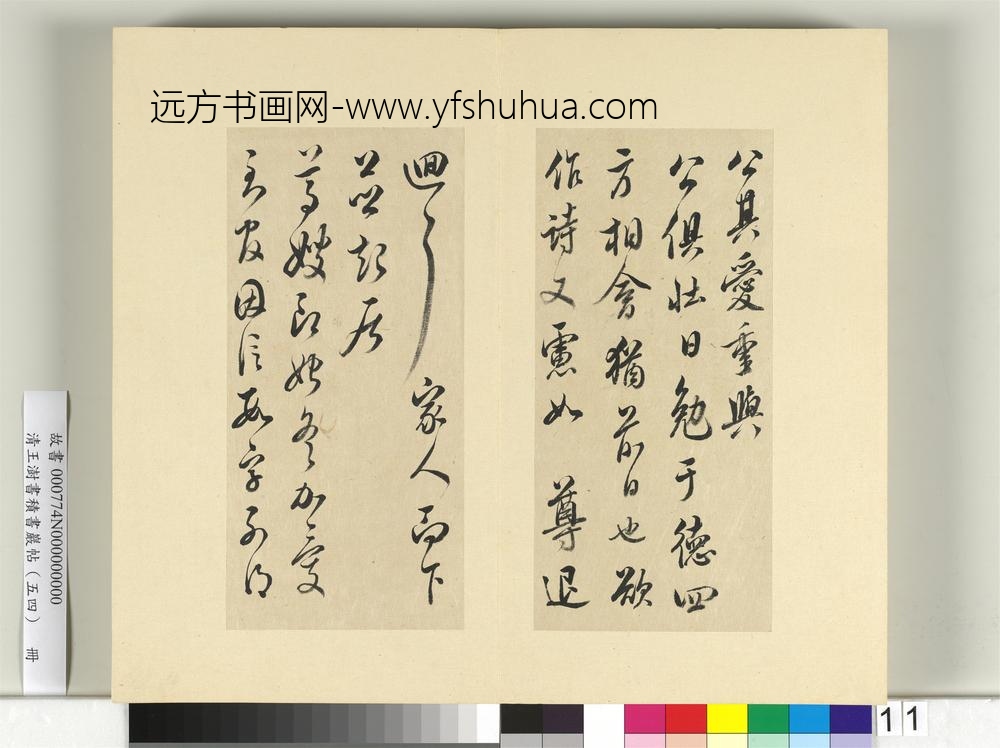 远方书画网-www.yfshuhua.com
公其愛重與
公俱壯日勉于德四
方相會猶前日也欲
作詩又慮如 尊退
迴之 家人而下
並起居
尊嫂郎娘各加愛
因信致字不得
故書 000774N000000000
清王澍書積書巖帖(五四) 冊
11